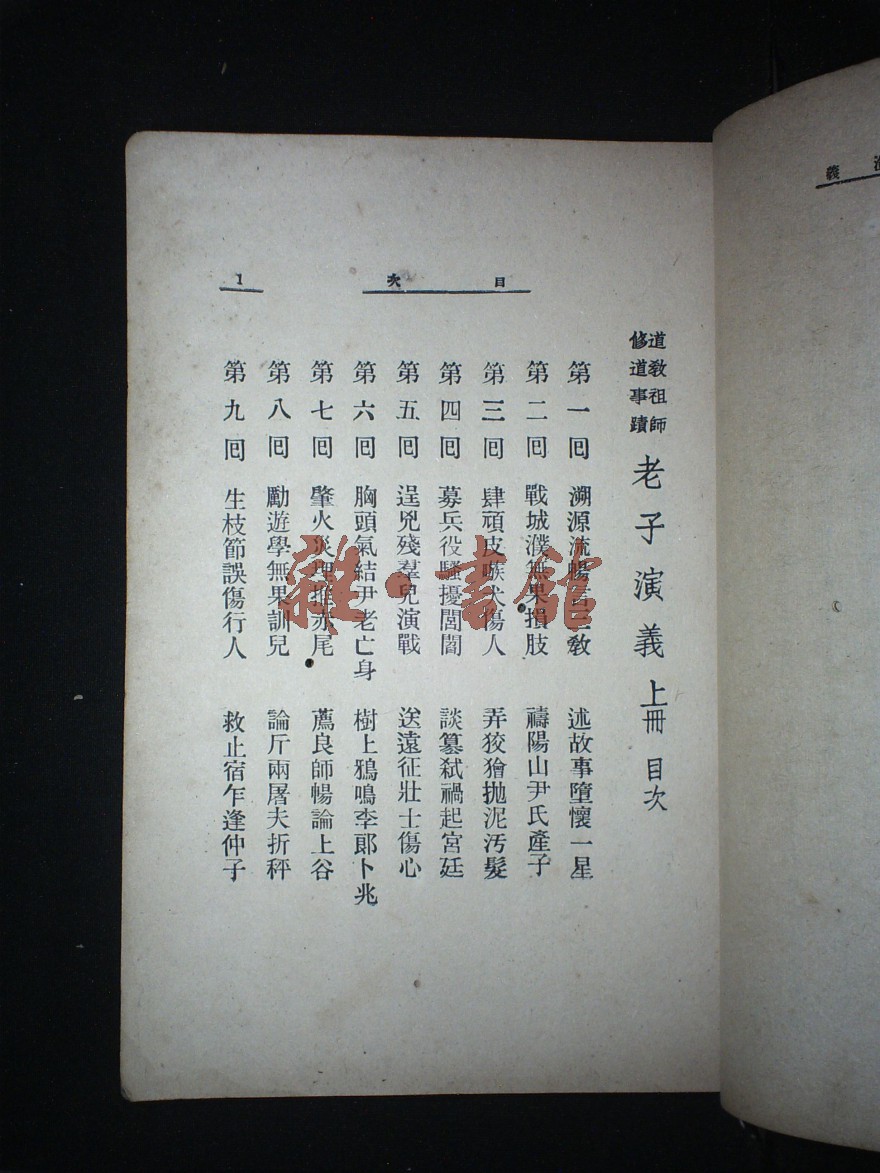 義 演
目 次
1
道教祖師
修道事蹟
老子演義上冊目次
第一囘 溯源流暢 三教 述故事墮懷一星
第二囘 戰城濮無果損肢 禱陽山尹氏產子
第三囘 肆頑皮嗾犬傷人 弄狡獪拋泥汚髮
第四囘 募兵役騷擾閭閻 談篡弑禍起宮廷
第五囘 逞兇殘羣兒演戰 送遠征壯士傷心
第六囘 胸頭氣結尹老亡身 樹上鴉鳴李郞卜兆
第七囘 肇火災埋 赤尾 薦良師暢論上谷
第八囘 勵遊學無果訓兒 論斤兩屠夫折秤
第九囘 生枝節誤傷行人 救止宿乍逢仲子
雜·書館